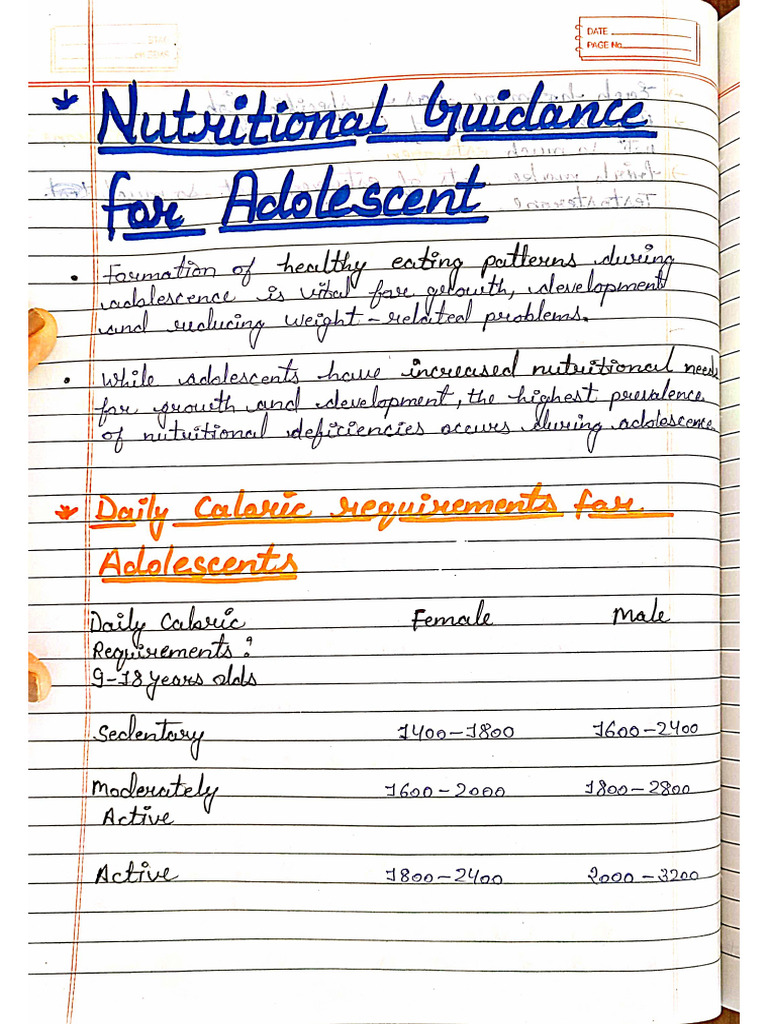 DATE
PAGE No.
Nutritional Guidance
for Adolescent
• Formation of healthy eating patterns during
adolescence is vital for growth, development
and reducing weight-related problems.
• While adolescents have increased nutritional needs
for growth and development, the highest prevalence
of nutritional deficiencies occurs during adolescence.
Daily Caloric requirements for
Adolescents
Daily Caloric Female Male
Requirements:
9-18 years olds
Sedentary 1400-1800 1600-2400
Moderately 1600-2000 1800-2800
Active
Active 1800-2400 2000-3200